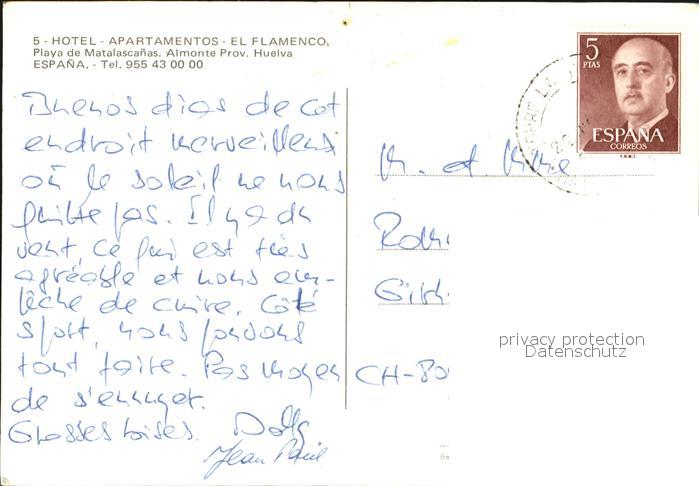 5 - HOTEL - APARTAMENTOS - EL FLAMENCO.
Playa de Matalascañas. Almonte Prov. Huelva
ESPAÑA. - Tel. 955 43 00 00
Buenos dias de cet
endroit merveilleux
où le soleil ne nous
quitte pas. Il y a du
vent, ce qui est très
agréable et nous em-
pêche de cuire. Côté
sport, nous pouvons
tout faire. Pas moyen
de s'ennuyer.
Grosses bises. Dolly
Jean Paul
5
PTAS
ESPAÑA
CORREOS
F.N.M.T.
M. et Mme
CH-80
privacy protection
Datenschutz